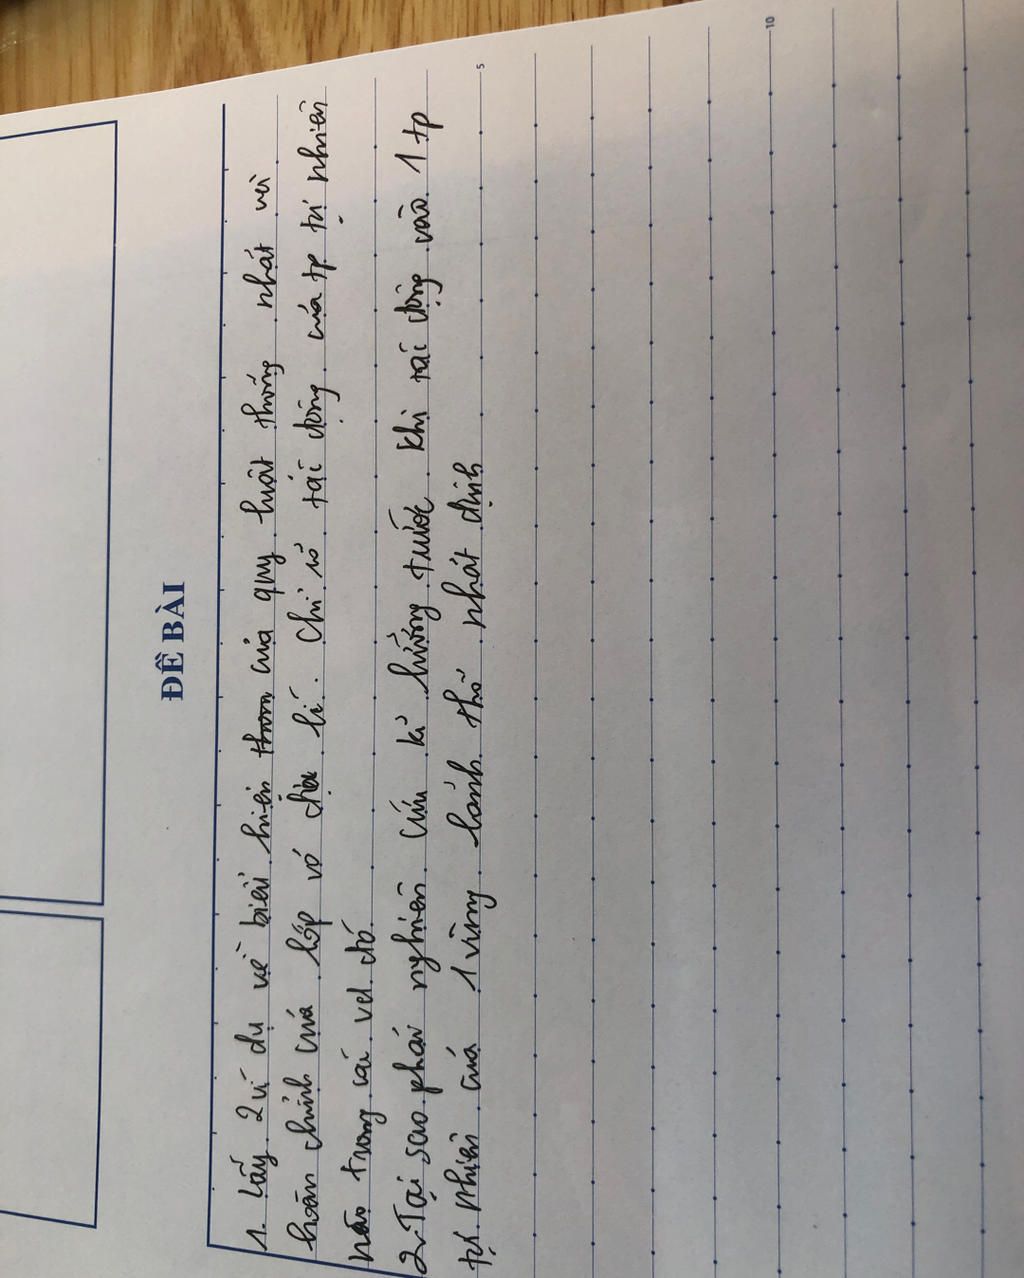 ĐỀ BÀI
1. Lấy 2 ví dụ về biểu hiện của quy luật thống nhất và
hoàn chỉnh của lớp vỏ địa lí. Chỉ rõ tác động của tp tự nhiên
nào trong các vd đó
2. Tại sao phải nghiên cứu kĩ lưỡng trước khi tác động vào 1 tp
tự nhiên của 1 vùng lãnh thổ nhất định
5
10